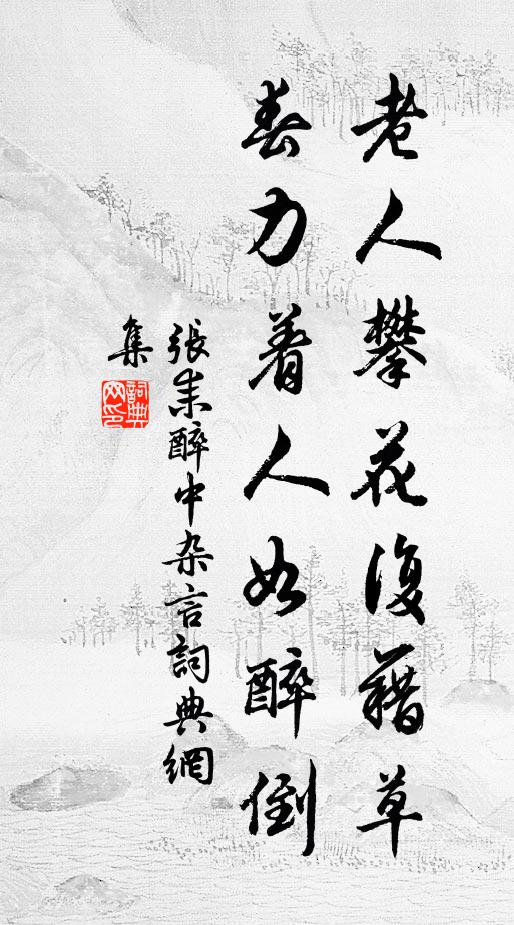 老人攀花復藉草
春力着人如醉倒
張耒醉中杂言詞典網
集
詞典网印